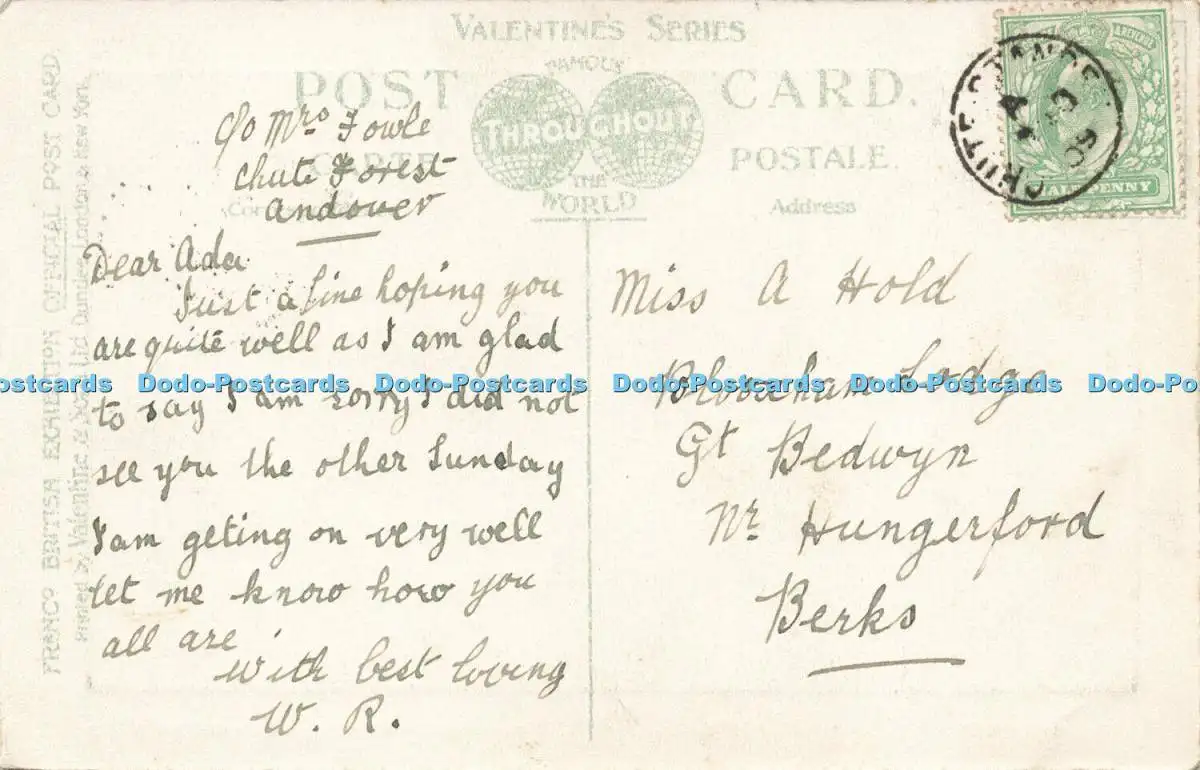 VALENTINE'S SERIES
POST CARD.
FAMOUS
THROUGHOUT
THE
WORLD
CARTE POSTALE.
Address
FRANCO BRITISH EXHIBITION OFFICIAL POST CARD
Printed by Valentine & Sons Ltd Dundee, London & New York.
HALFPENNY
A
09
c/o Mrs Fowle
Chute Forest
Andover
Dear Ada
Just a line hoping you
are quite well as I am glad
to say I am sorry I did not
see you the other Sunday
I am geting on very well
let me know how you
all are
With best loving
W. R.
Miss A Hold
Lodge
Gt Bedwyn
Nr Hungerford
Berks
ostcards Dodo-Postcards Dodo-Postcards Dodo-Postcards Dodo-Postcards Dodo-Po